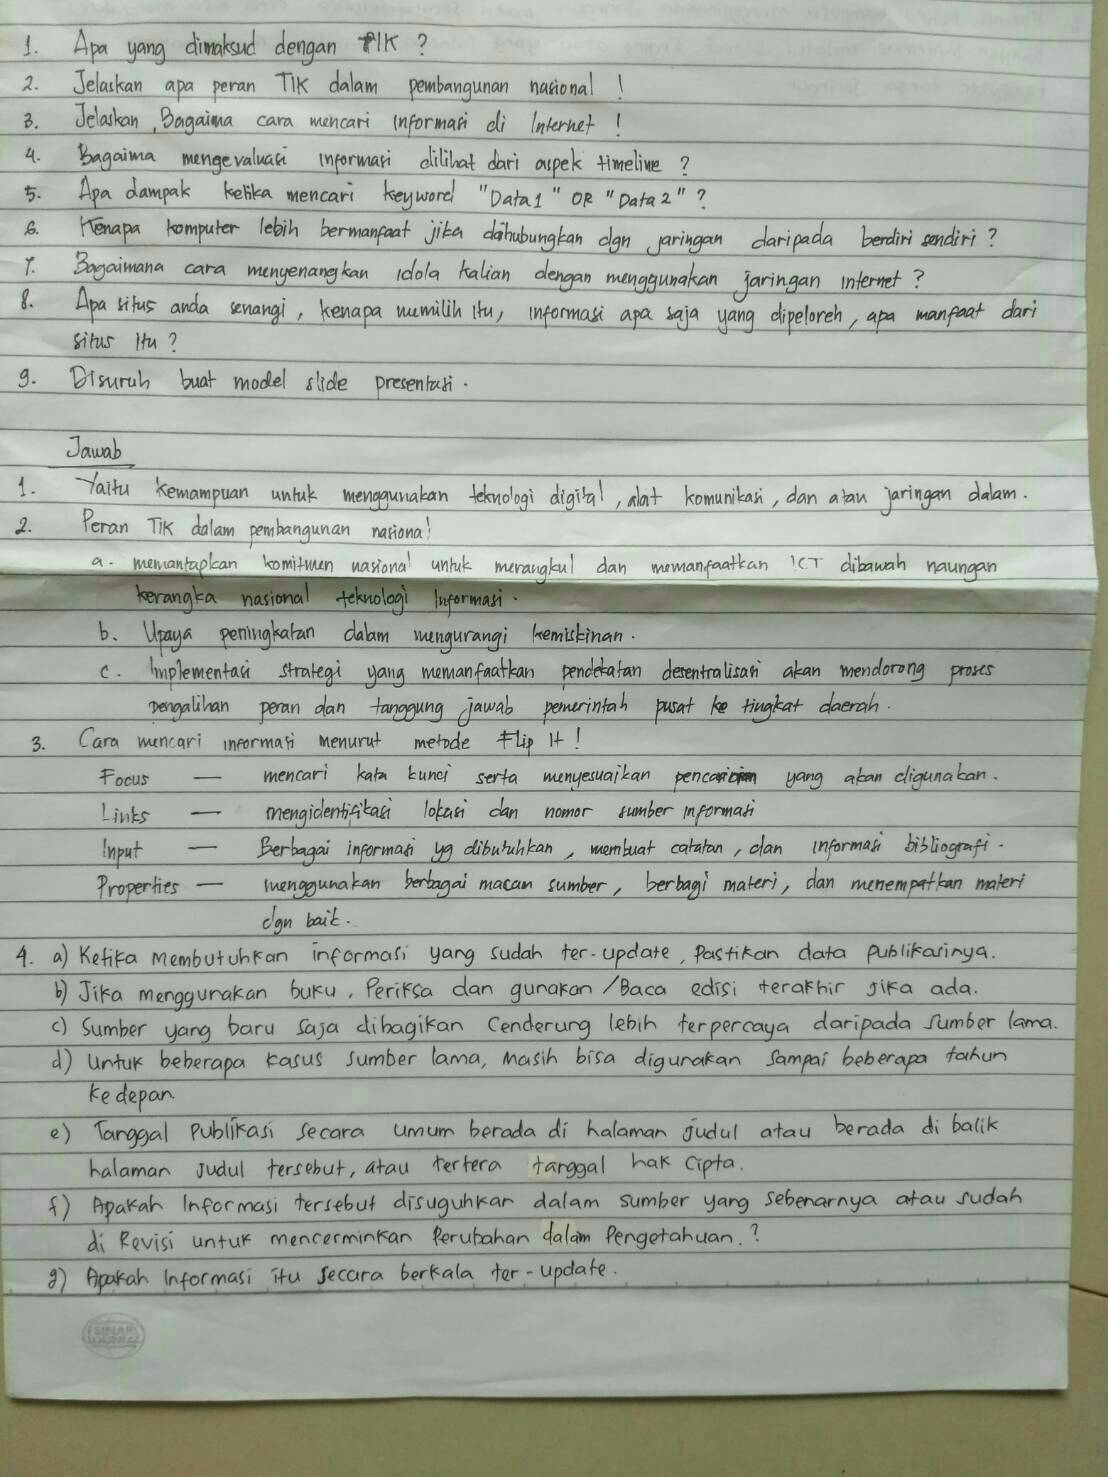 1. Apa yang dimaksud dengan TIK ?
2. Jelaskan apa peran TIK dalam pembangunan nasional !
3. Jelaskan, Bagaima cara mencari informasi di Internet !
4. Bagaima mengevaluasi informasi dilihat dari aspek timeline ?
5. Apa dampak ketika mencari keyword "Data1" OR "Data2" ?
6. Kenapa komputer lebih bermanfaat jika dihubungkan dgn jaringan daripada berdiri sendiri ?
7. Bagaimana cara menyenangkan idola kalian dengan menggunakan jaringan internet ?
8. Apa situs anda senangi, kenapa memilih itu, informasi apa saja yang dipeloreh, apa manfaat dari
situs itu ?
9. Disuruh buat model slide presentasi.
Jawab
1. Yaitu kemampuan untuk menggunakan teknologi digital, alat komunikasi, dan atau jaringan dalam.
2. Peran TIK dalam pembangunan nasional
a. memantapkan komitmen nasional untuk merangkul dan memanfaatkan ICT dibawah naungan
kerangka nasional teknologi Informasi.
b. Upaya peningkatan dalam mengurangi kemiskinan.
c. Implementasi strategi yang memanfaatkan pendekatan desentralisasi akan mendorong proses
pengalihan peran dan tanggung jawab pemerintah pusat ke tingkat daerah.
3. Cara mencari informasi menurut metode Flip It !
Focus — mencari kata kunci serta menyesuaikan pencarian yang akan digunakan.
Links — mengidentifikasi lokasi dan nomor sumber informasi
Input — Berbagai informasi yg dibutuhkan, membuat catatan, dan informasi bibliografi.
Properties — menggunakan berbagai macam sumber, berbagi materi, dan menempatkan materi
dgn baik.
4. a) Ketika membutuhkan informasi yang sudah ter-update, Pastikan data Publikasinya.
b) Jika menggunakan buku, Periksa dan gunakan /Baca edisi terakhir jika ada.
c) Sumber yang baru saja dibagikan Cenderung lebih terpercaya daripada sumber lama.
d) Untuk beberapa kasus sumber lama, Masih bisa digunakan sampai beberapa tahun
ke depan.
e) Tanggal Publikasi Secara umum berada di halaman judul atau berada di balik
halaman judul tersebut, atau tertera tanggal hak Cipta.
f) Apakah Informasi tersebut disuguhkan dalam sumber yang sebenarnya atau sudah
di Revisi untuk mencerminkan Perubahan dalam Pengetahuan.?
g) Apakah Informasi itu secara berkala ter-update.
SINAR
DUNIA